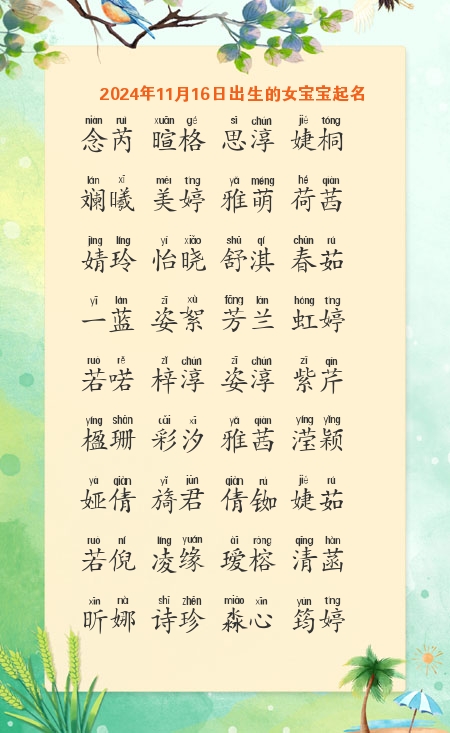 2024年11月16日出生的女宝宝起名
niàn ruì xuān gé sī chún jié tóng
念芮 暄格 思淳 婕桐
lán xī měi tíng yǎ méng hé qiàn
斓曦 美婷 雅萌 荷茜
jìng líng yí xiǎo shū qí chūn rú
婧玲 怡晓 舒淇 春茹
yī lán zī xù fāng lán hóng tíng
一蓝 姿絮 芳兰 虹婷
ruò rě zǐ chún zī chún zǐ qín
若喏 梓淳 姿淳 紫芹
yíng shān cǎi xī yǎ qiàn yíng yǐng
楹珊 彩汐 雅茜 滢颖
yà qiàn yǐ jūn qiàn rú jié rú
娅倩 旖君 倩铷 婕茹
ruò ní líng yuán ài róng qīng hàn
若倪 凌缘 瑷榕 清菡
xīn nà shī zhēn miǎo xīn yún tíng
昕娜 诗珍 淼心 筠婷